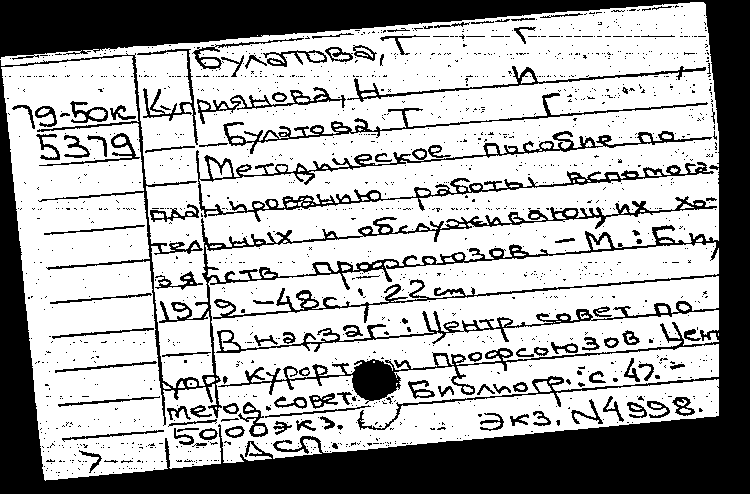 Булатова, Т Г
79-50к Куприянова, Н И
5379 Булатова, Т Г
Методическое пособие по
планированию работы вспомога-
тельных и обслуживающих хо-
зяйств профсоюзов. - М. : Б.и.,
1979. - 48с. ; 22 cm.
В надзаг. : Центр. совет по
упр. курортами профсоюзов. Цент
метод. совет. Библиогр.: с. 47. -
500 экз. Экз. N4998.
ДСП.